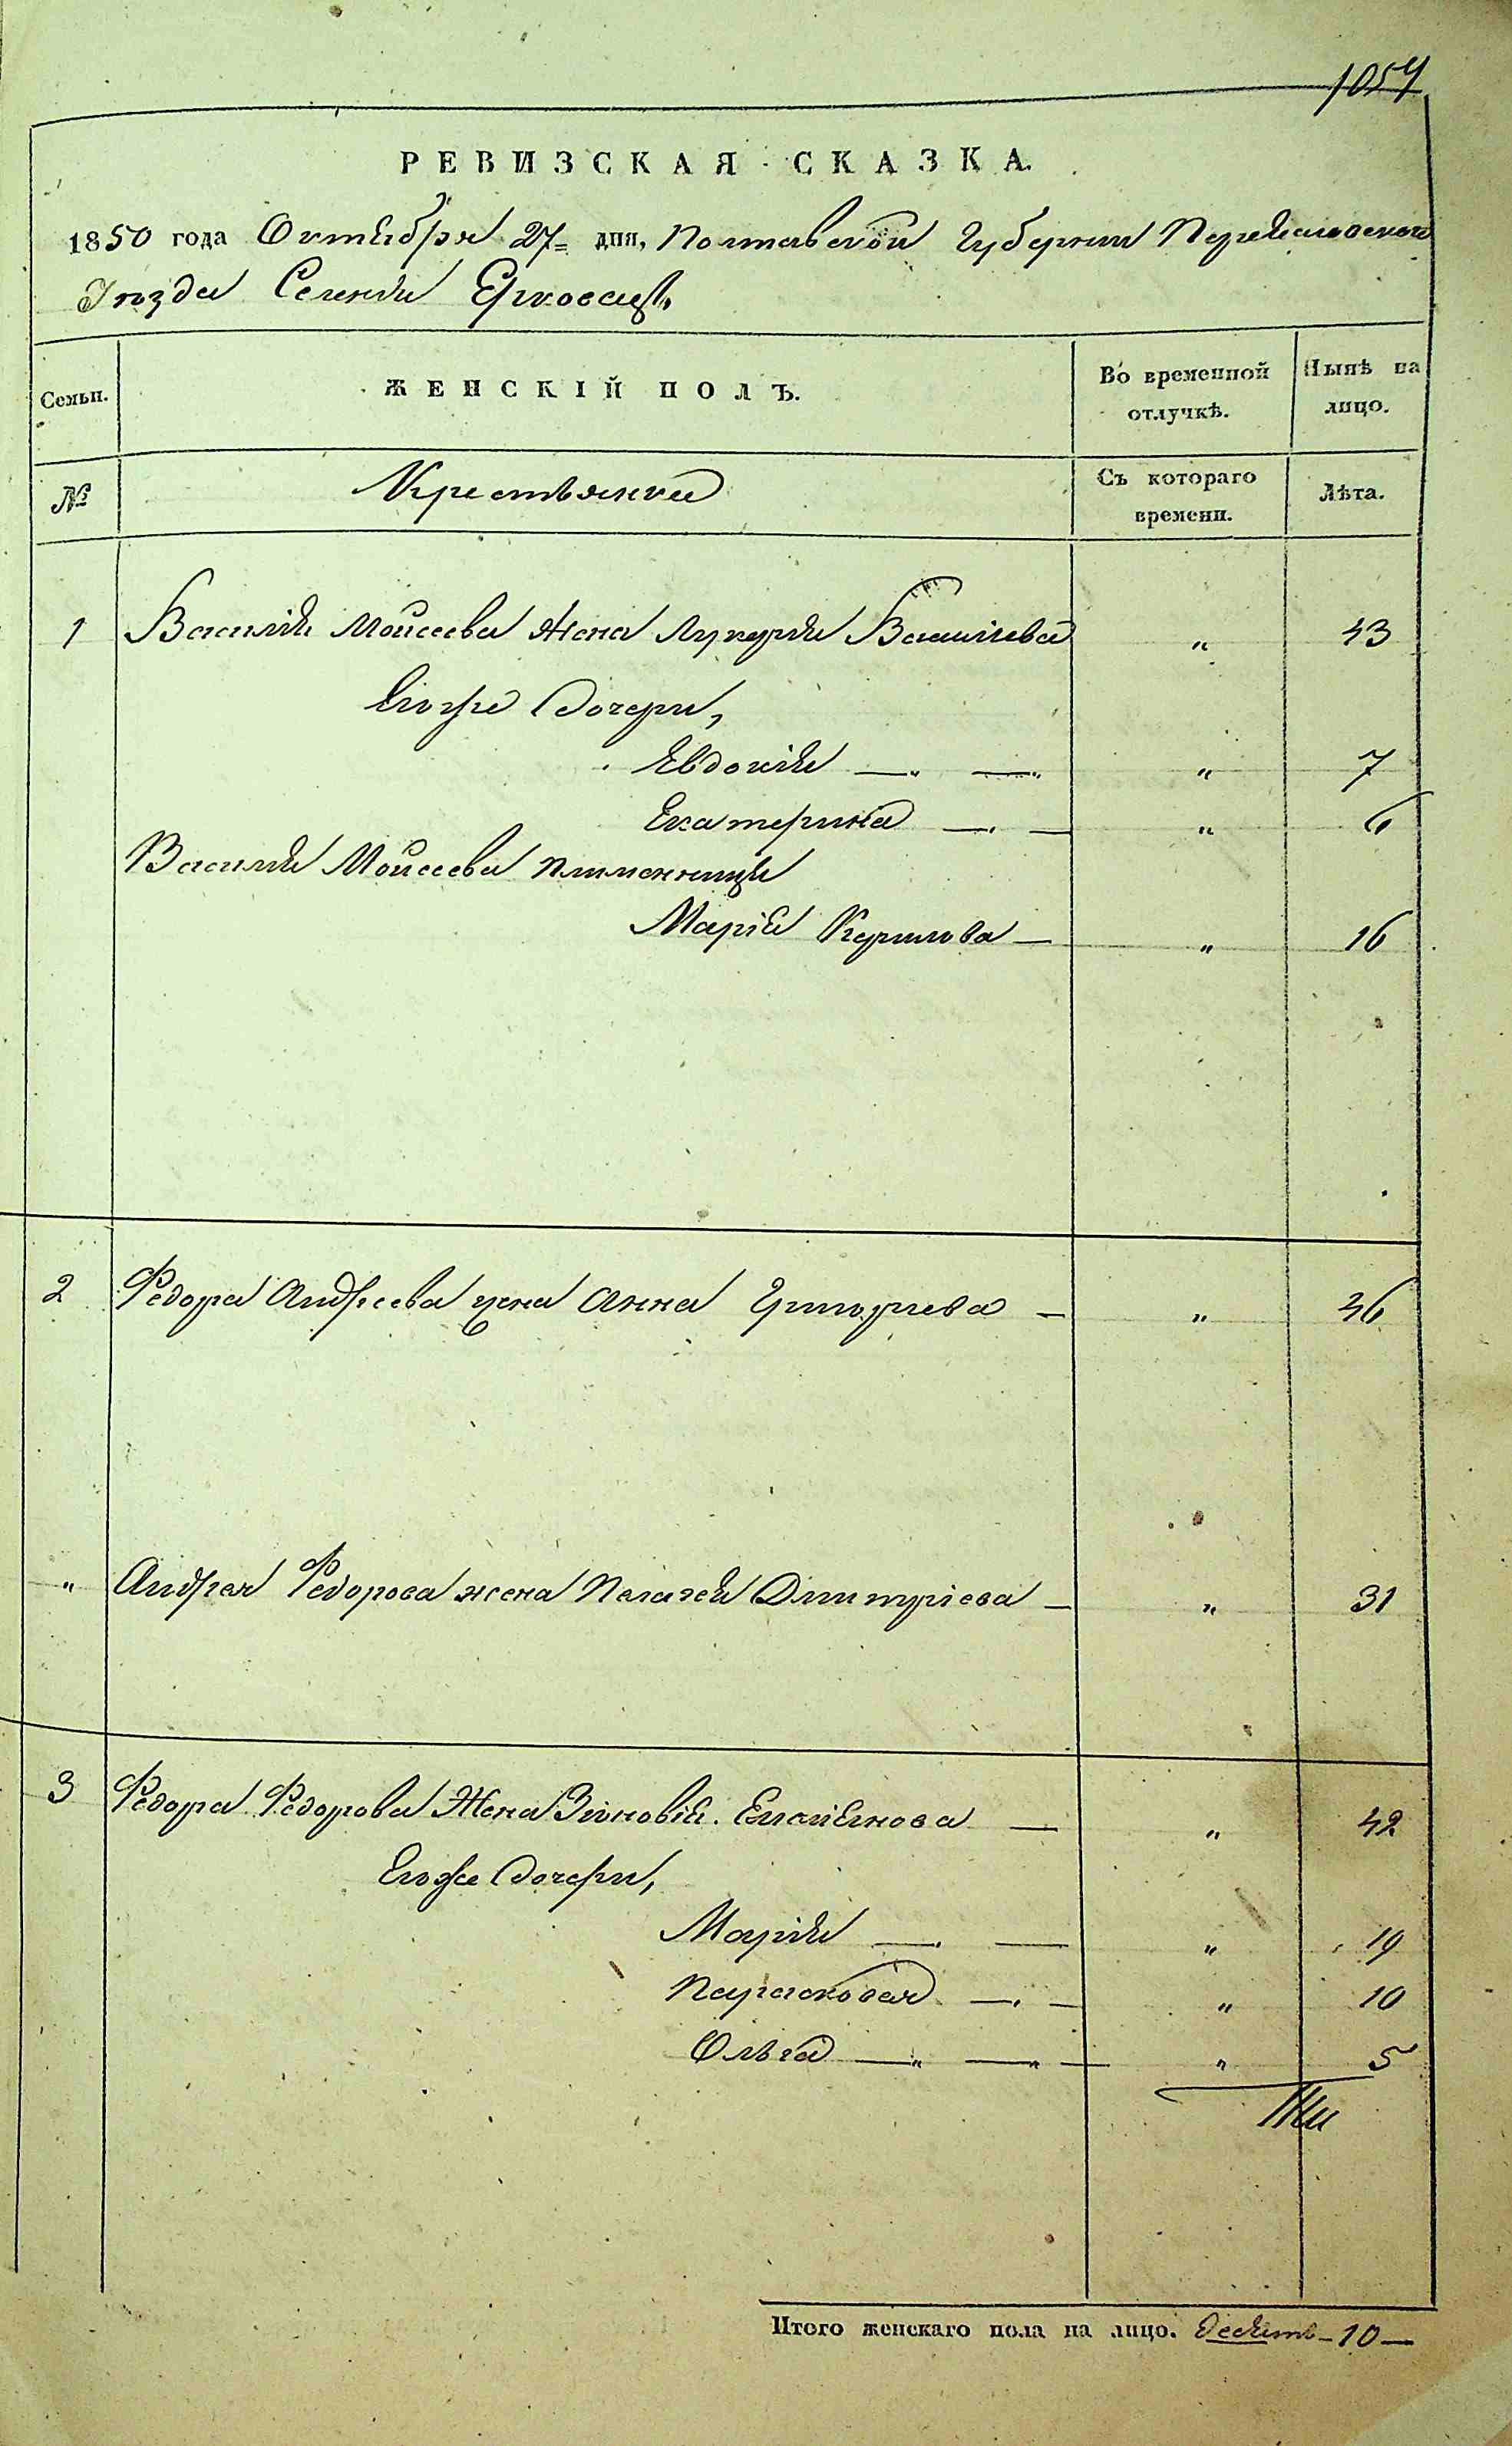 1054
РЕВИЗСКАЯ СКАЗКА.
1850 года Октября 27 = дня, Полтавской Губернии Переяславского
Уѣзда Селенія
Семьи. ЖЕНСКІЙ ПОЛЪ. Во временной отлучкѣ. Нынѣ на лицо.
№ Крестьянки Съ котораго времени. Лѣта.
1 Василія Моисеева Жена Лукерія Васильева " 43
Егоже Дочери,
Евдокія — " — " " 7
Екатерина — " — " 6
Василія Моисеева племенница
Марія Курилова — " 16
2 Федора Андреева жена Анна Григорьева — " 46
" Андрея Федорова жена Пелагея Дмитріева — " 31
3 Федора Федорова Жена Зиновія Емелянова — " 42
Егоже Дочери,
Марія — " — " 19
Парасковея — " — " 10
Ольга — " — " — " 5
Итого женскаго пола на лицо. десять — 10 —